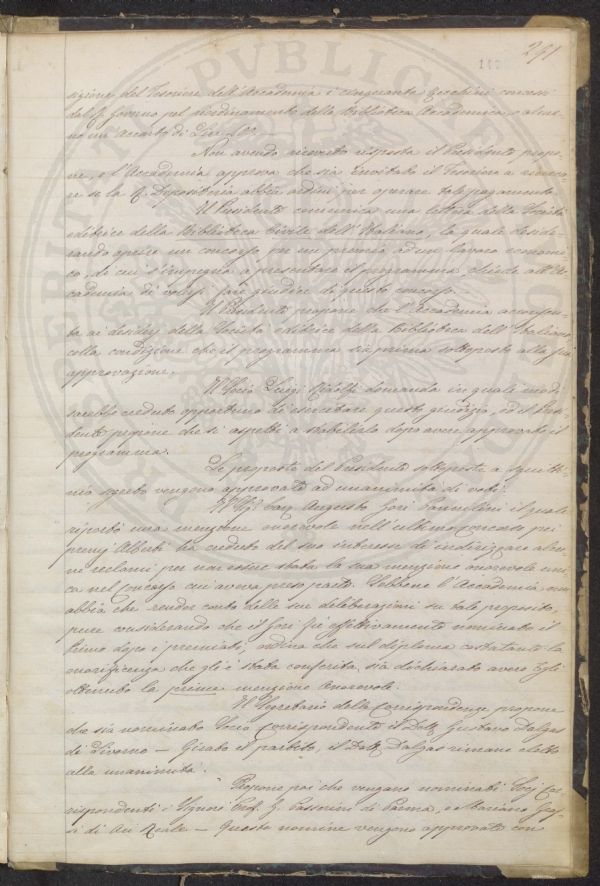 291
147
sizione del Tesoriere dell'Accademia i cinquanta zecchini concessi
dal R. Governo pel riordinamento della Biblioteca Accademica, o alme-
no un accento di Lire
Non avendo ricevuto risposta il Presidente propo-
ne, e l'Accademia approva che sia invitato il Tesoriere a
re se la R. Depositeria abbia ordini per operare tale pagamento.
Il Presidente comunica una lettera della Società
editrice della Biblioteca Civile dell'Italiano, la quale deside-
rando aprire un concorso per un premio ad un lavoro economi-
co, di cui s'impegna a presentare il programma, chiede all'Ac-
cademia di volersi fare giudice di questo concorso.
Il Presidente propone che l'Accademia acconsen-
ta ai desiderj della Società editrice della Biblioteca dell'Italiano
colla condizione che il programma sia prima sottoposto alla sua
approvazione.
Il Socio Luigi Ridolfi domanda in quale modo
sarebbe creduto opportuno di esercitare questo giudizio, ed il Presi-
dente propone che si aspetti a stabilirlo dopo avere approvato il
programma.
Le proposte del Presidente sottoposte a squitti-
nio segreto vengono approvate ad unanimità di voti.
Il Sig. Cav. Augusto Gori Pannilini il quale
riportò una menzione onorevole nell'ultimo concorso pei
premj Alberti ha creduto del suo interesse di indirizzare alcu-
ni reclami per non essere stata la sua menzione onorevole uni-
ca nel concorso cui aveva preso parte. Sebbene l'Accademia non
abbia che render conto delle sue deliberazioni su tale proposito,
pure considerando che il Gori fu effettivamente nominato il
primo dopo i premiati, ordina che sul diploma costatante la
onorificenza che gli è stata conferita, sia dichiarato avere Egli
ottenuto la prima menzione onorevole.
Il Segretario delle Corrispondenze propone
che sia nominato Socio corrispondente il Dott. Gustavo Dalgas
di Livorno — Girato il partito, il Dott. Dalgas rimane eletto
alla unanimità.
Propone poi che vengano nominati Socj Cor-
rispondenti i Signori Prof. G. Passerini di Parma, e Mariano
di Aci Reale — Queste nomine vengono approvate con